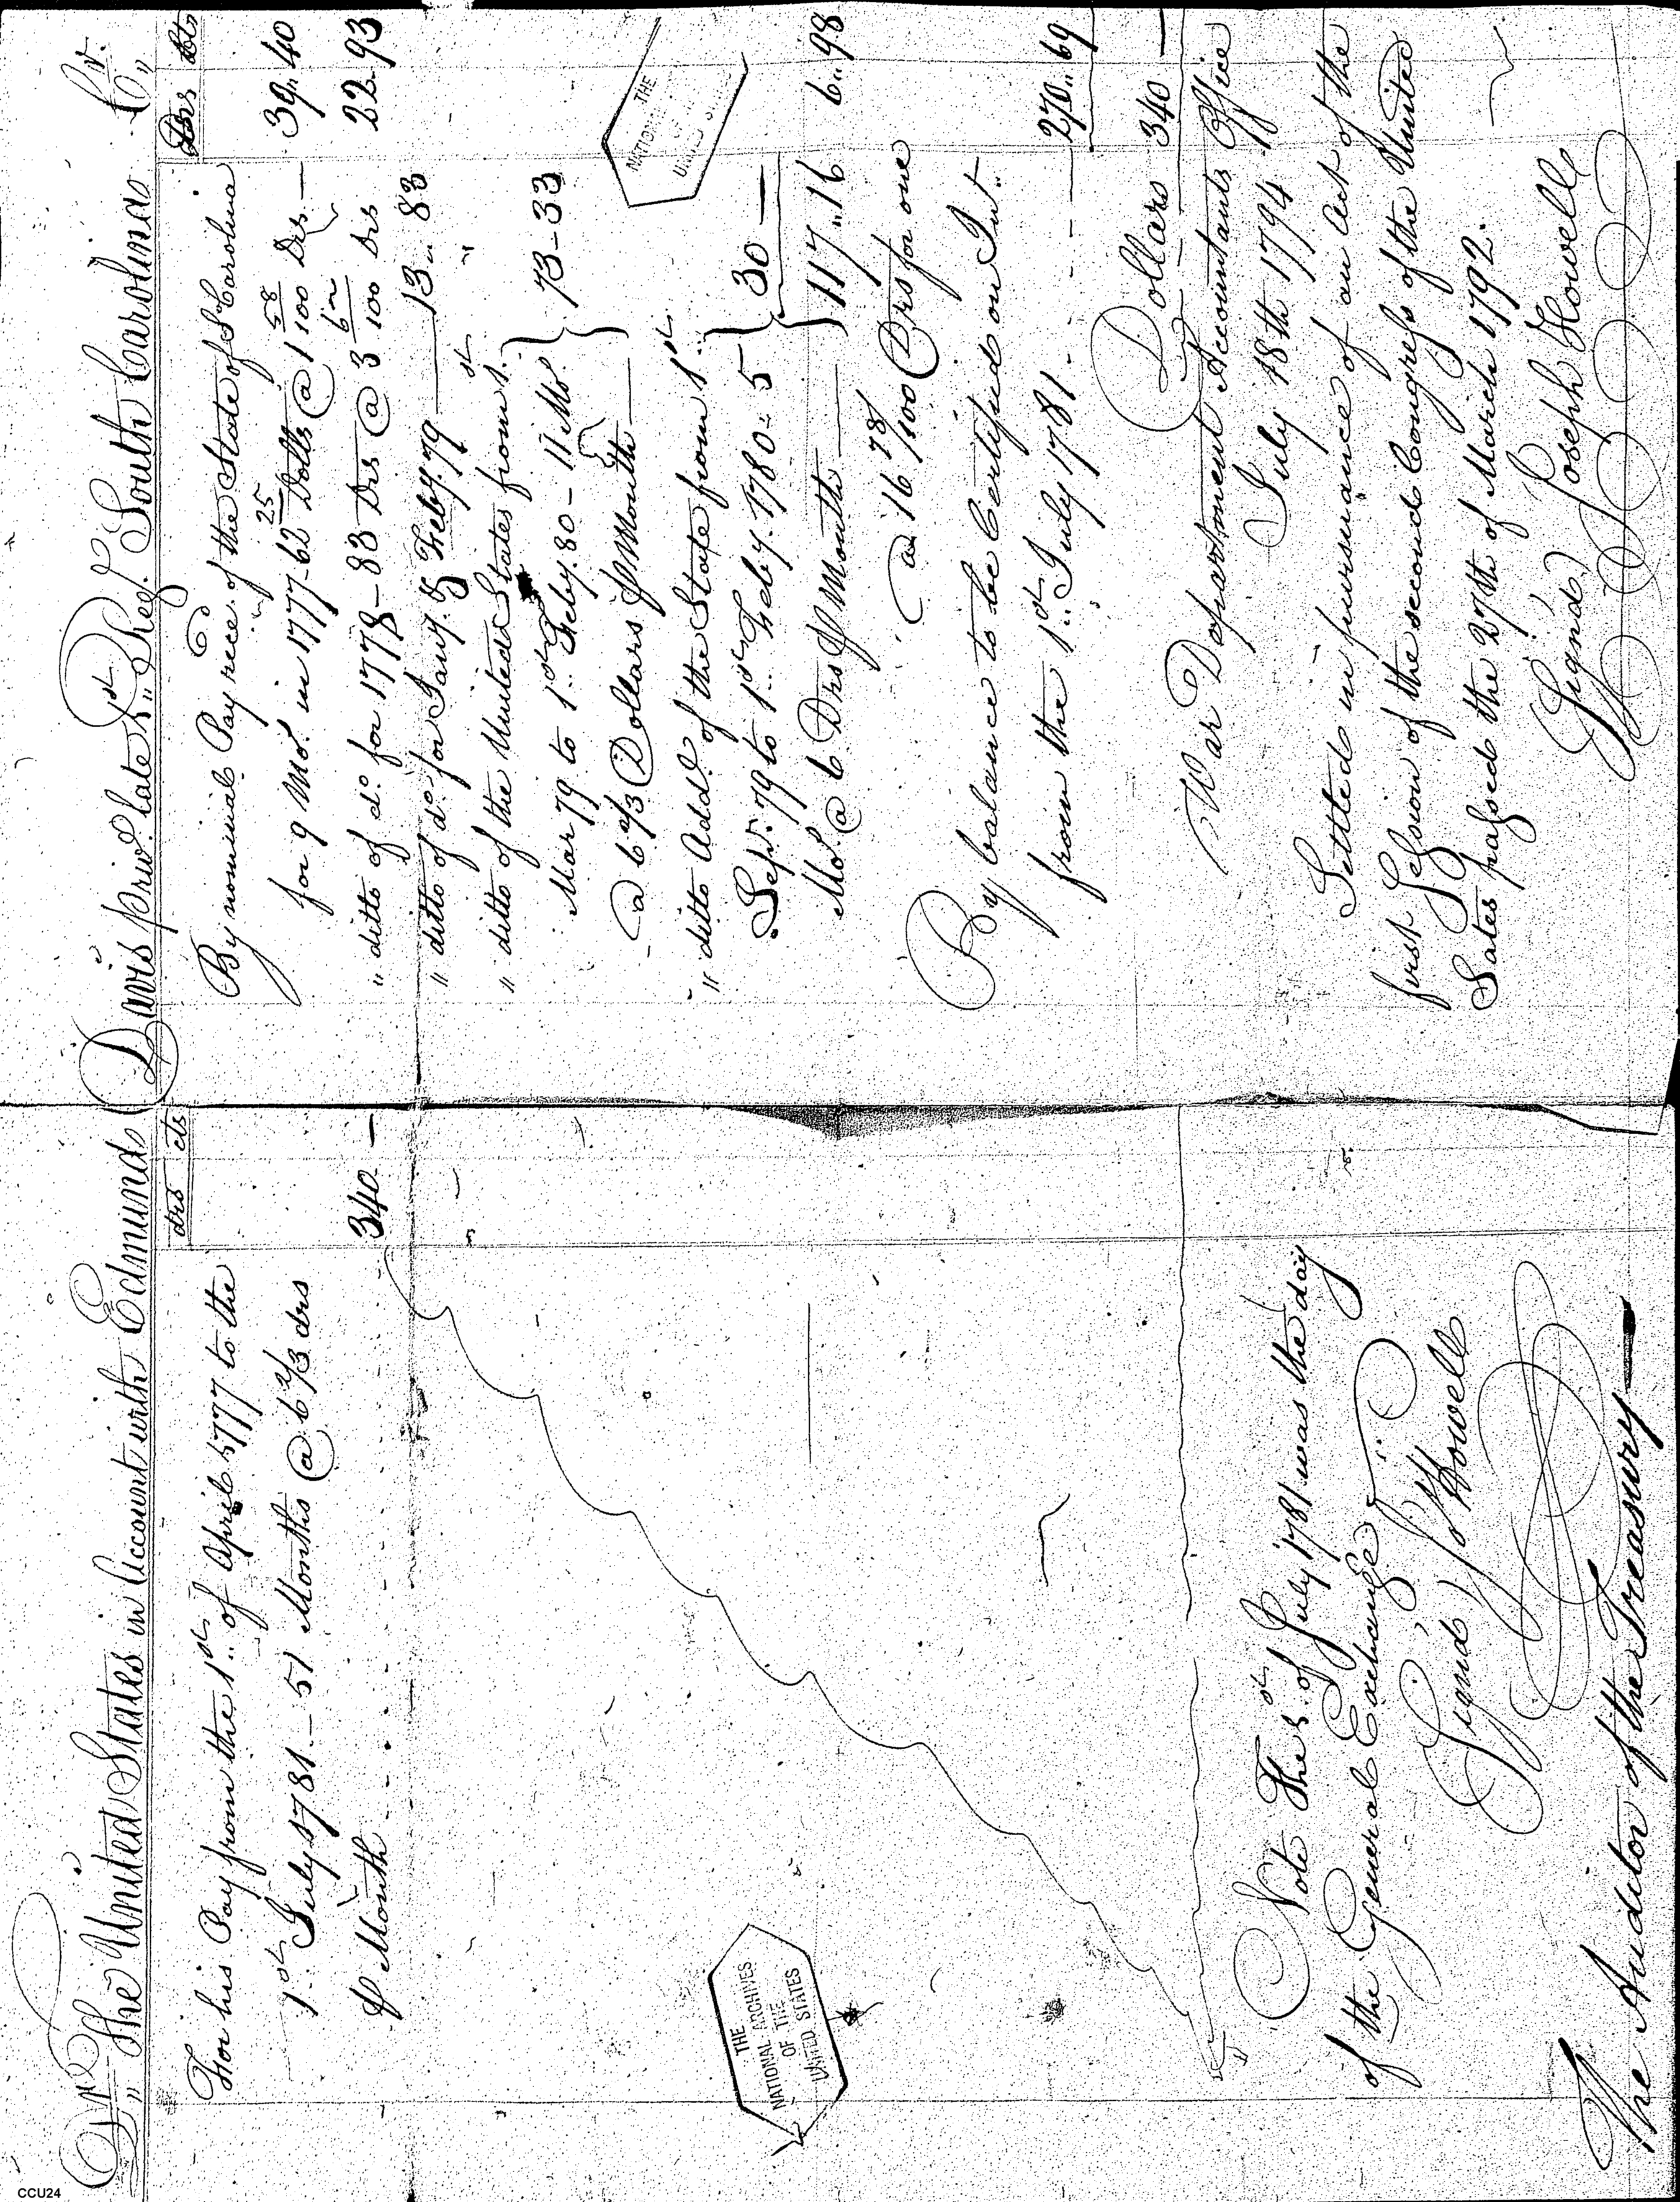 Dr. The United States in Account with Edmund Davis priv. late 1st Reg. South Carolina Cr.
drs cts
For his Pay from the 1st of April 1777 to the
1st July 1781 - 51 Months @ 6 2/3 drs
⅌ Month - - - - 340 -
Note The 1st of July 1781 was the day
of the General Exchange
Signd, Jos Howell
The Auditor of the Treasury
Drs Cts
By nominal Pay recd. of the State of S Carolina
for 9 Mos. in 1777 - 62 25 Dolls @ 1 58/100 Drs - 39.. 40
" ditto of do. for 1778 - 83 Drs @ 3 62/100 Drs 22.93
" ditto of do. for Jany. & Feby. 79 13.. 83
" ditto of the United States from 1st
Mar 79 to 1st Feby. 80 - 11 Mos.
@ 6 2/3 Dollars ⅌ Month 73-33
" ditto Addl. of the State from 1st
Sepr. 79 to 1st Feby. 1780 - 5
Mos. @ 6 Drs ⅌ Month 30 -
117..16
@ 16 78/100 Drs for one 6..98
By balance to be Certified on Int.
from the 1st July 1781 - - - - 270.. 69
Dollars 340 -
War Department Accountants Office
July 18th 1794
Settled in pursuance of an Act of the
first Session of the second Congress of the United
Sates passed the 27th of March 1792.
Signd) Joseph Howell
THE
NATIONAL ARCHIVES
OF THE
UNITED STATES
THE
CCU24